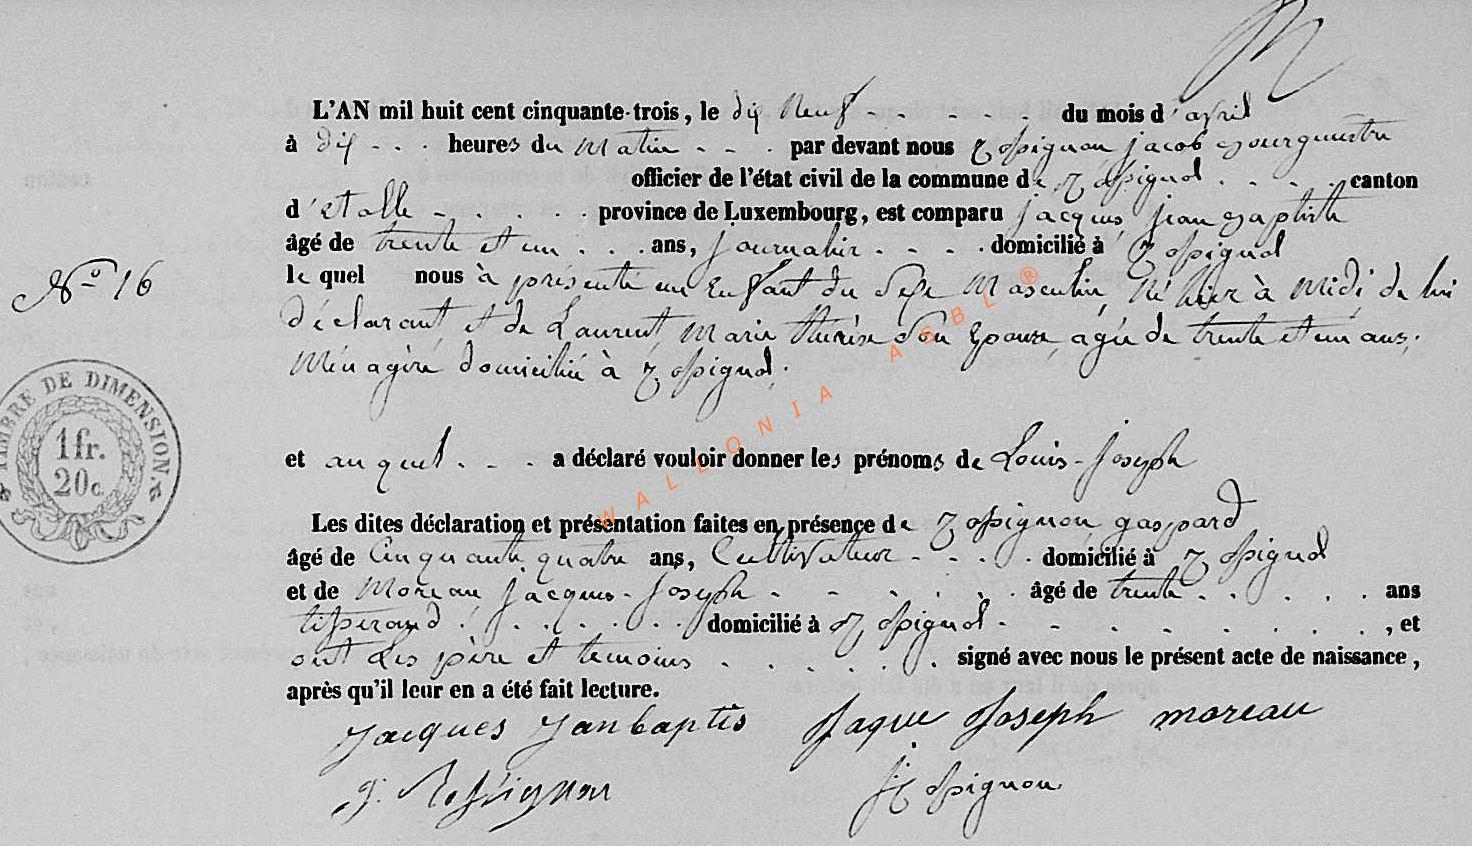 L'AN mil huit cent cinquante-trois, le dix neuf du mois d'avril
à dix heures du Matin par devant nous Rossignon jacob Bourguestre
officier de l'état civil de la commune de Rossignol canton
d'etalle province de Luxembourg, est comparu jacques, jean Baptiste
âgé de trente et un ans, journalier domicilié à Rossignol
le quel nous à présenté un Enfant du Sexe Masculin, Né hier à Midi de lui
N° 16
déclarant, et de Laurent, Marie thérèse Son Epouse, agée de trente et un ans,
Ménagère domiciliée à Rossignol.
TIMBRE DE DIMENSION.
1 fr.
20 c.
et auquel a déclaré vouloir donner les prénoms de Louis-Joseph
WALLONIA ASBL ®
Les dites déclaration et présentation faites en présence de Rossignon gaspard
âgé de Cinquante quatre ans, Cultivateur domicilié à Rossignol
et de Moreau jacques-Joseph âgé de trente ans
tisserand domicilié à Rossignol, et
ont Les père et temoins signé avec nous le présent acte de naissance,
après qu'il leur en a été fait lecture.
Jacques Janbaptis Jaque Joseph moreau
g. Rossignon J Rossignon